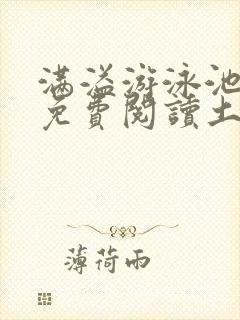 满溢游泳池
免費閱讀土
薄荷雨